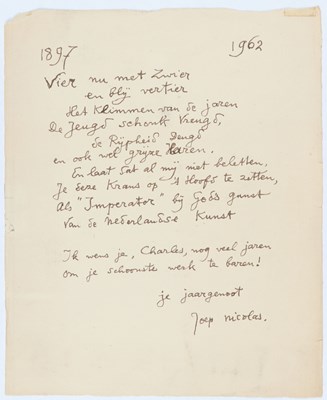 1897 1962
Vier nu met Zwier
en blij vertier
Het Klimmen van de jaren
De Jeugd schonk Vreugd,
de Rijpheid Deugd
en ook wel grijze Haren.
En laat dat al mij niet beletten,
Je deze Krans op 't Hoofd te zetten,
Als "Imperator" bij Gods gunst
Van de Nederlandse Kunst
Ik wens je, Charles, nog veel jaren
om je schoonste werk te baren!
je jaargenoot
Joep Nicolas.